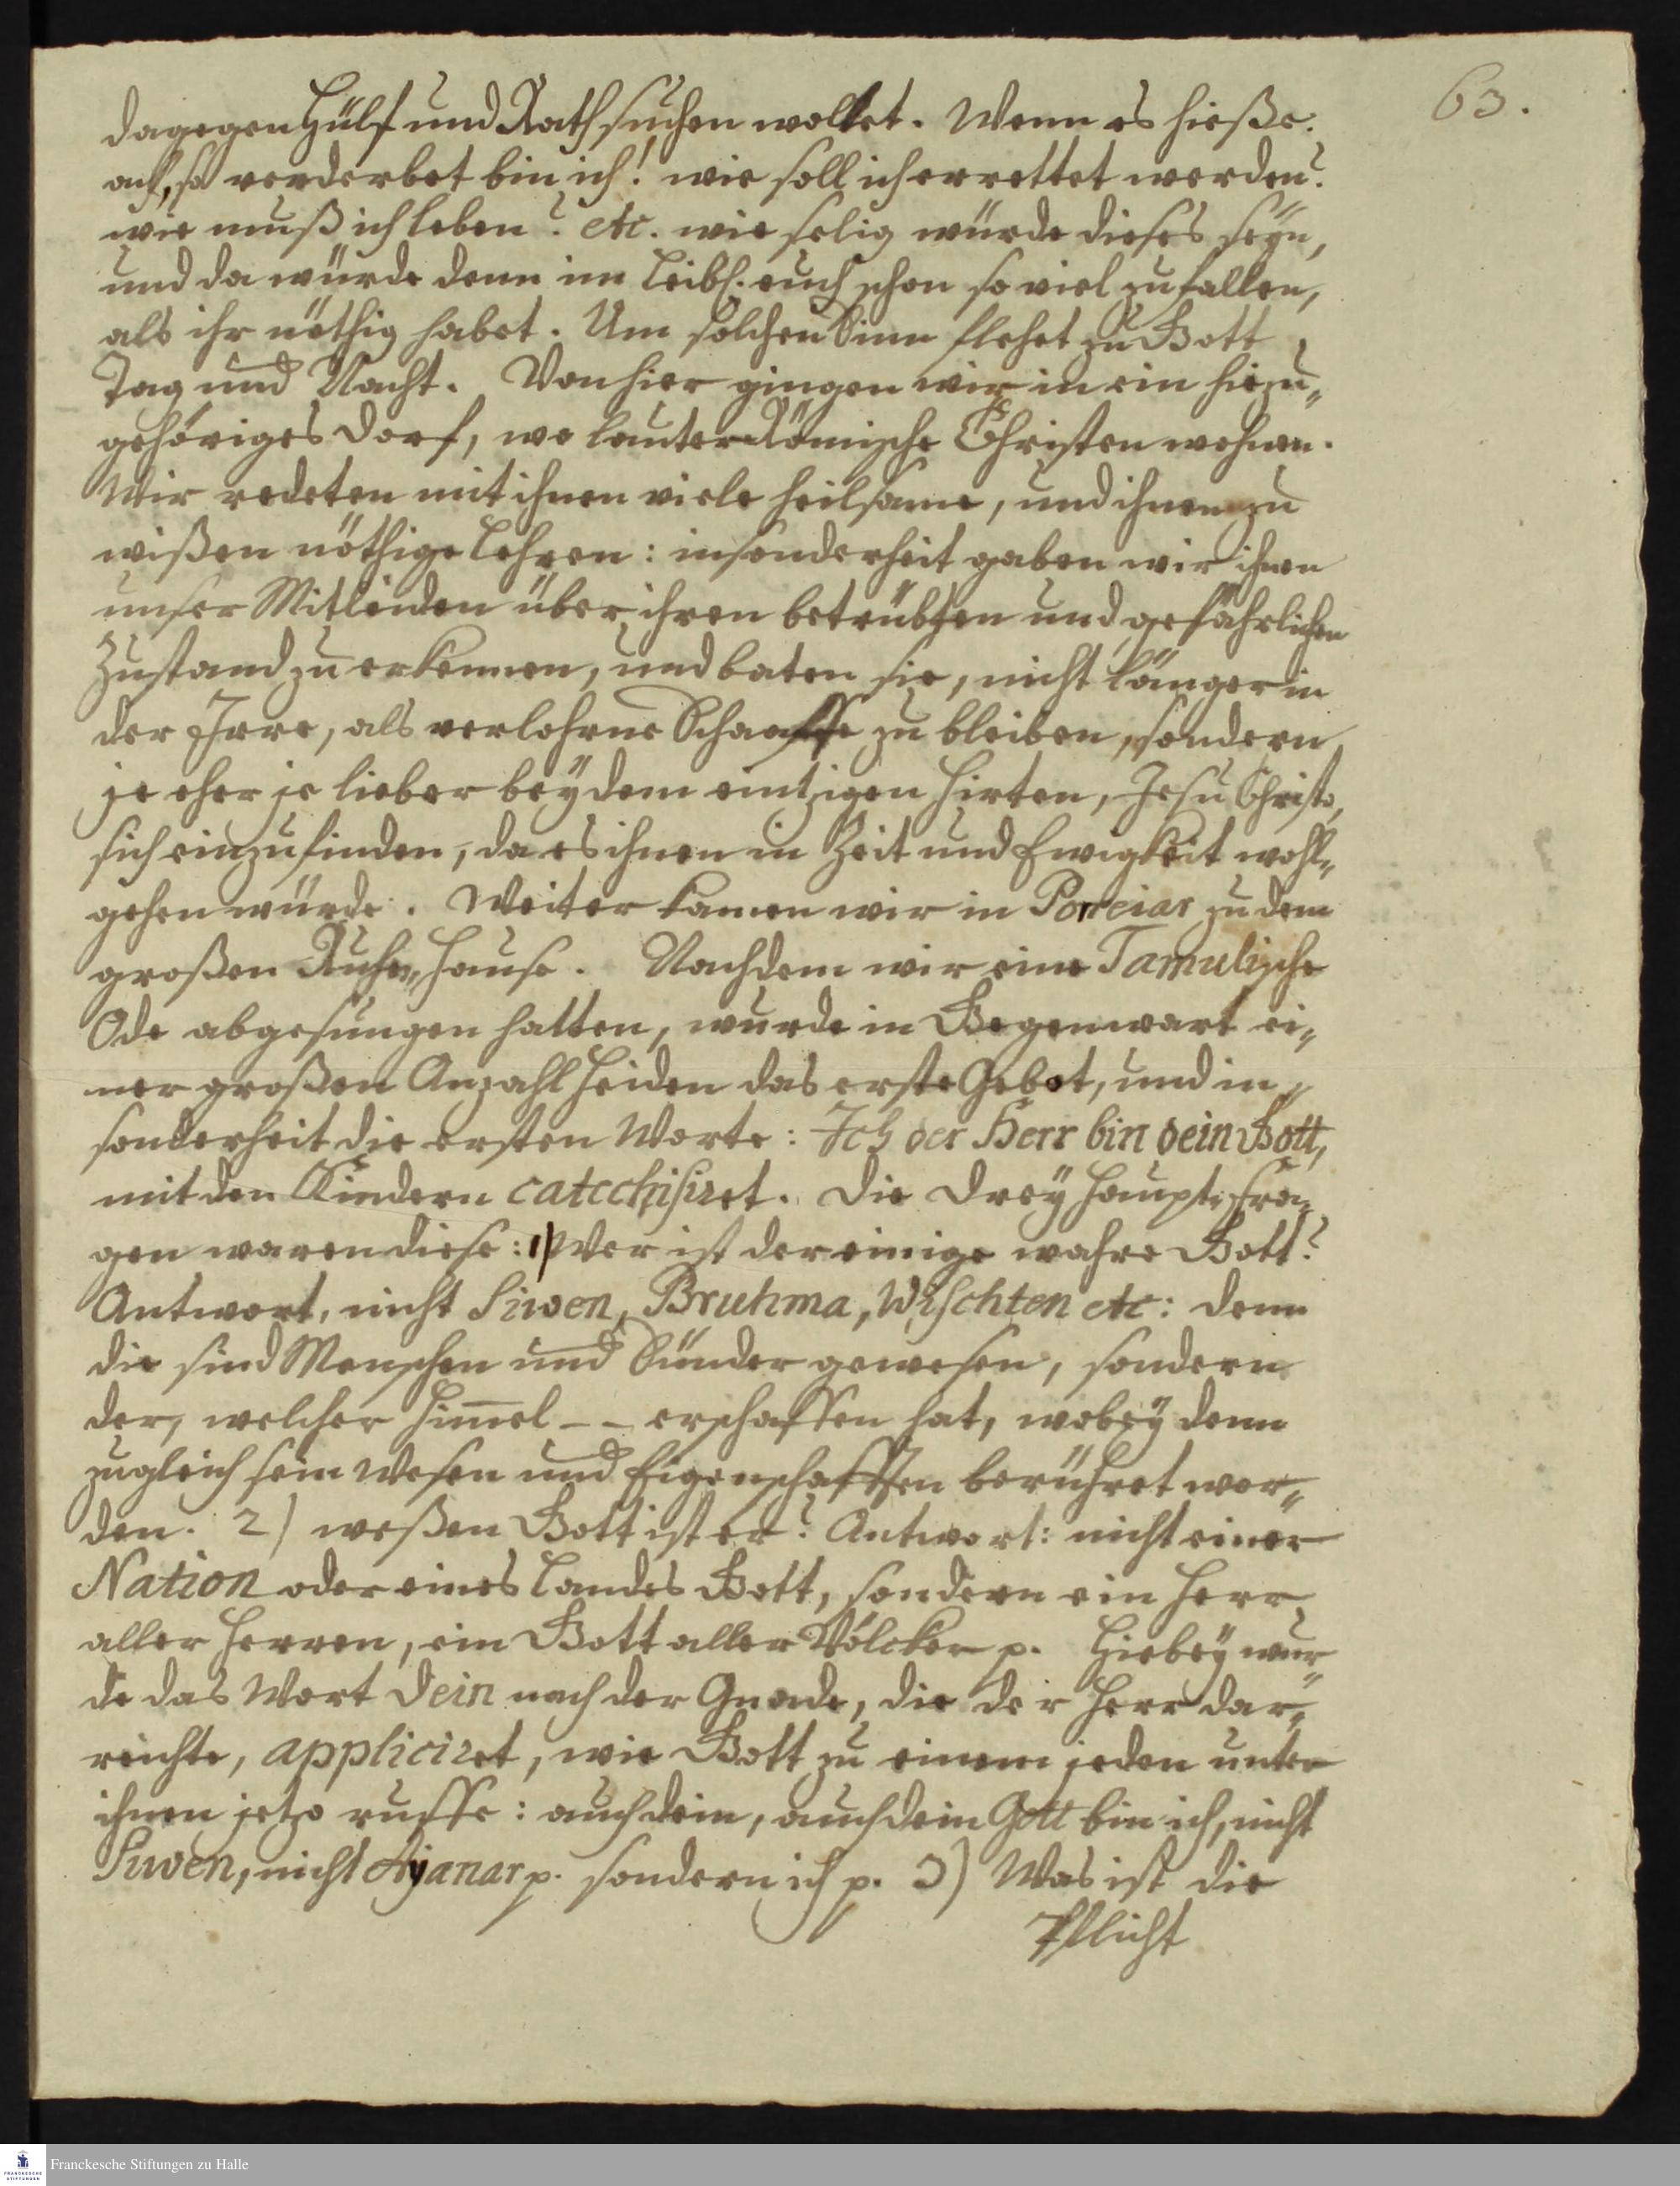 63.
dagegen Hülf und Rath suchen wollet. Wenn es hieße:
ach, so verderbet bin ich! wie soll ich errettet werden?
wie muß ich leben? etc. wie selig würde dieses seÿn,
und da würde denn im Leibl. euch schon so viel zufallen,
als ihr nöthig habet. Um solchen Sinn flehet zu Gott
Tag und Nacht. Von hier gingen wir in ein hiezu„
gehöriges Dorf, wo lauter Römische Christen wohnen.
Wir redeten mit ihnen viele heilsame, und ihnen zu
wißen nöthige Lehren: insonderheit gaben wir ihnen
unser Mitleiden über ihren betrübten und gefährlichen
Zustand zu erkennen, und baten sie, nicht länger in
der Irre, als verlohrne Schaaffe zu bleiben, sondern
je eher je lieber beÿ dem eintzigen Hirten, Jesu Christo,
sich einzufinden, da es ihnen in Zeit und Ewigkeit wohl„
gehen würde. Weiter kamen wir in Porreiar zu dem
großen Ruhe„Hause. Nachdem wir eine Tamulische
Ode abgesungen hatten, wurde in Gegenwart ei„
ner großen Anzahl Heiden das erste Gebot, und in„
sonderheit die ersten Worte: Ich der Herr bin dein Gott,
mit den Kindern catechisiret. Die dreÿ Haupt„Fra„
gen waren diese: 1) Wer ist der einige wahre Gott?
Antwort, nicht Siwen, Bruhma, Wischten etc: denn
die sind Menschen und Sünder gewesen, sondern
der, welcher Him̅el - - erschaffen hat, wobeÿ denn
zugleich sein Wesen und Eigenschafften berühret wor„
den. 2) weßen Gott ist er? Antwort: nicht einer
Nation oder eines Landes Gott, sondern ein Herr
aller Herren, ein Gott aller Völcker p. Hiebeÿ wur„
de das Wort Dein nach der Gnade, die der Herr dar„
reichte, appliciret, wie Gott zu einem jeden unter
ihnen jetzo ruffe: auch dein, auch dein Gott bin ich, nicht
Siwen, nicht Aÿanar p. sondern ich p. 3) Was ist die
Pflicht
Franckesche Stiftungen zu Halle
FRANCKESCHE
STIFTUNGEN